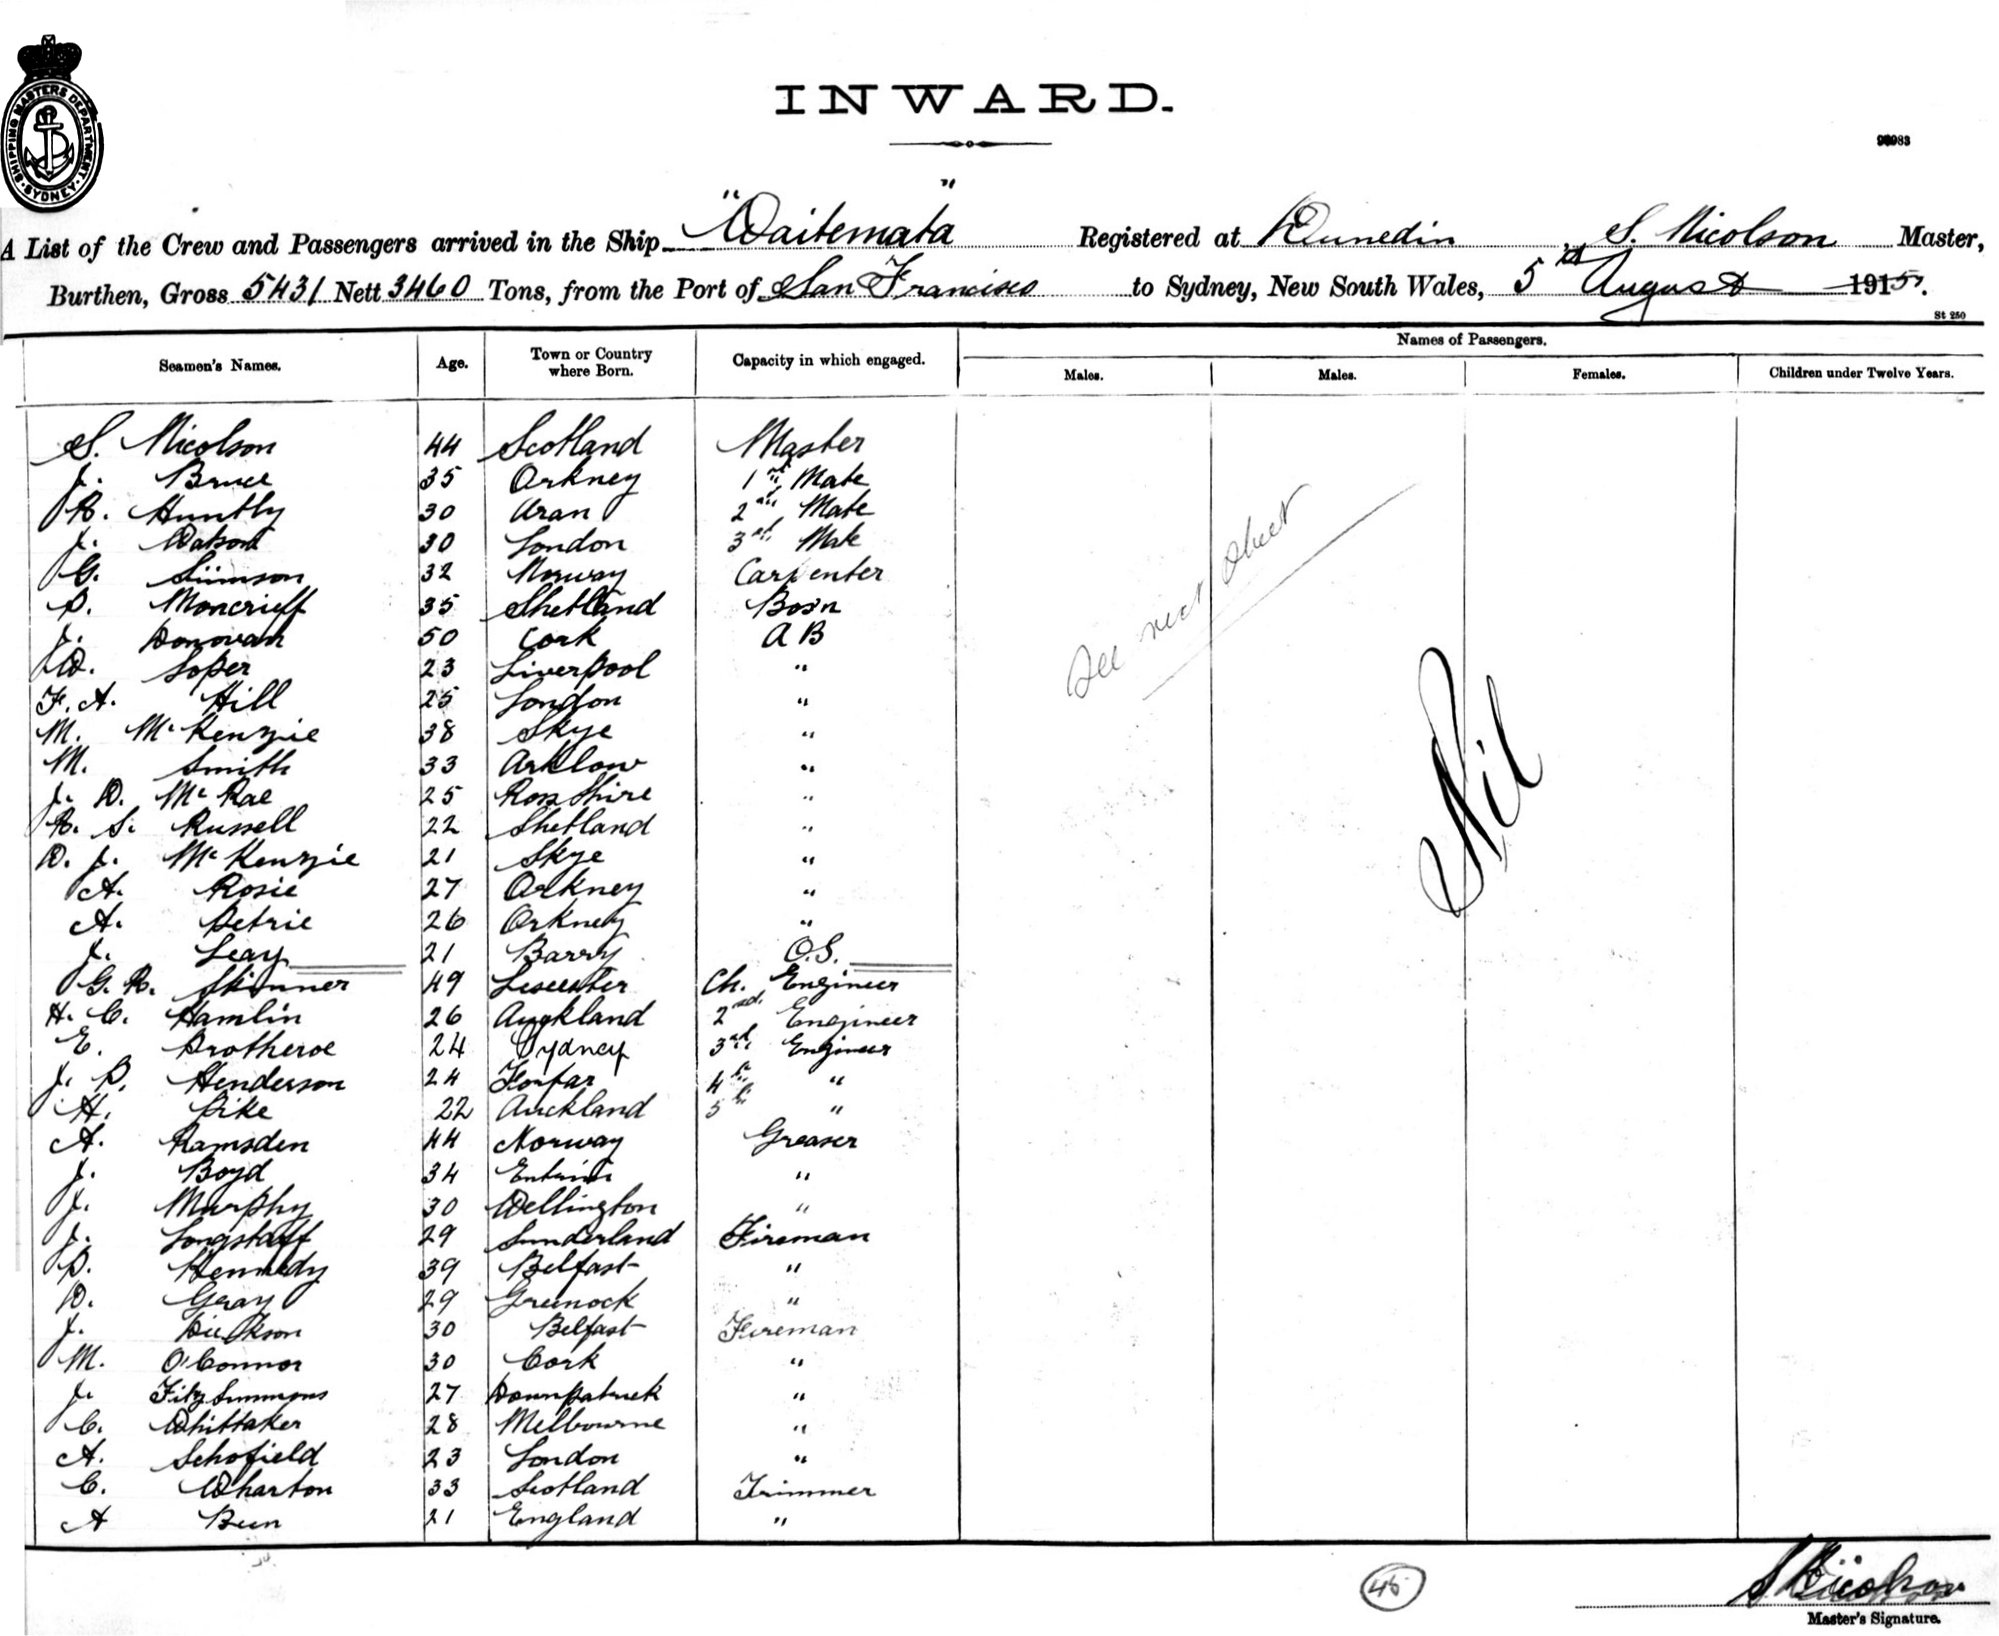 SHIPPING MASTERS DEPARTMENT · SYDNEY ·
INWARD.
983
A List of the Crew and Passengers arrived in the Ship "Waitemata" Registered at Dunedin, S. Nicolson Master,
Burthen, Gross 5431 Nett 3460 Tons, from the Port of San Francisco to Sydney, New South Wales, 5th August 1915.
St 250
Seamen's Names. Age. Town or Country where Born. Capacity in which engaged. Names of Passengers.
Males. Males. Females. Children under Twelve Years.
S. Nicolson 44 Scotland Master
J. Bruce 35 Orkney 1st Mate
R. Huntly 30 Aran 2nd Mate
J. Watson 30 London 3rd Mate
G. 32 Norway Carpenter
P. Moncrieff 35 Shetland Bos'n
J. Donovan 50 Cork A B
W. Soper 23 Liverpool "
F. A. Hill 25 London "
M. McKenzie 38 Skye "
M. Smith 33 Arklow "
J. D. McRae 25 Ross Shire "
R. S. Russell 22 Shetland "
D. J. McKenzie 21 Skye "
A. Rosie 27 Orkney "
A. Petrie 26 Orkney "
J. Leay 21 Barry O.S.
G. R. Skinner 49 Leicester Ch. Engineer
H. C. Hamlin 26 Auckland 2nd. Engineer
E. Protheroe 24 Sydney 3rd. Engineer
J. P. Henderson 24 Forfar 4th "
H. Pike 22 Auckland 5th "
A. Ramsden 44 Norway Greaser
J. Boyd 34 "
J. Murphy 30 Wellington "
J. Longstaff 29 Sunderland Fireman
P. Kennedy 39 Belfast "
D. Gray 29 Greenock "
J. Dickson 30 Belfast Fireman
M. O'Connor 30 Cork "
J. FitzSimmons 27 Downpatrick "
C. Whittaker 28 Melbourne "
A. Schofield 23 London "
C. Wharton 33 Scotland Trimmer
A Been 21 England "
See next sheet
Nil
45
S Nicolson
Master's Signature.